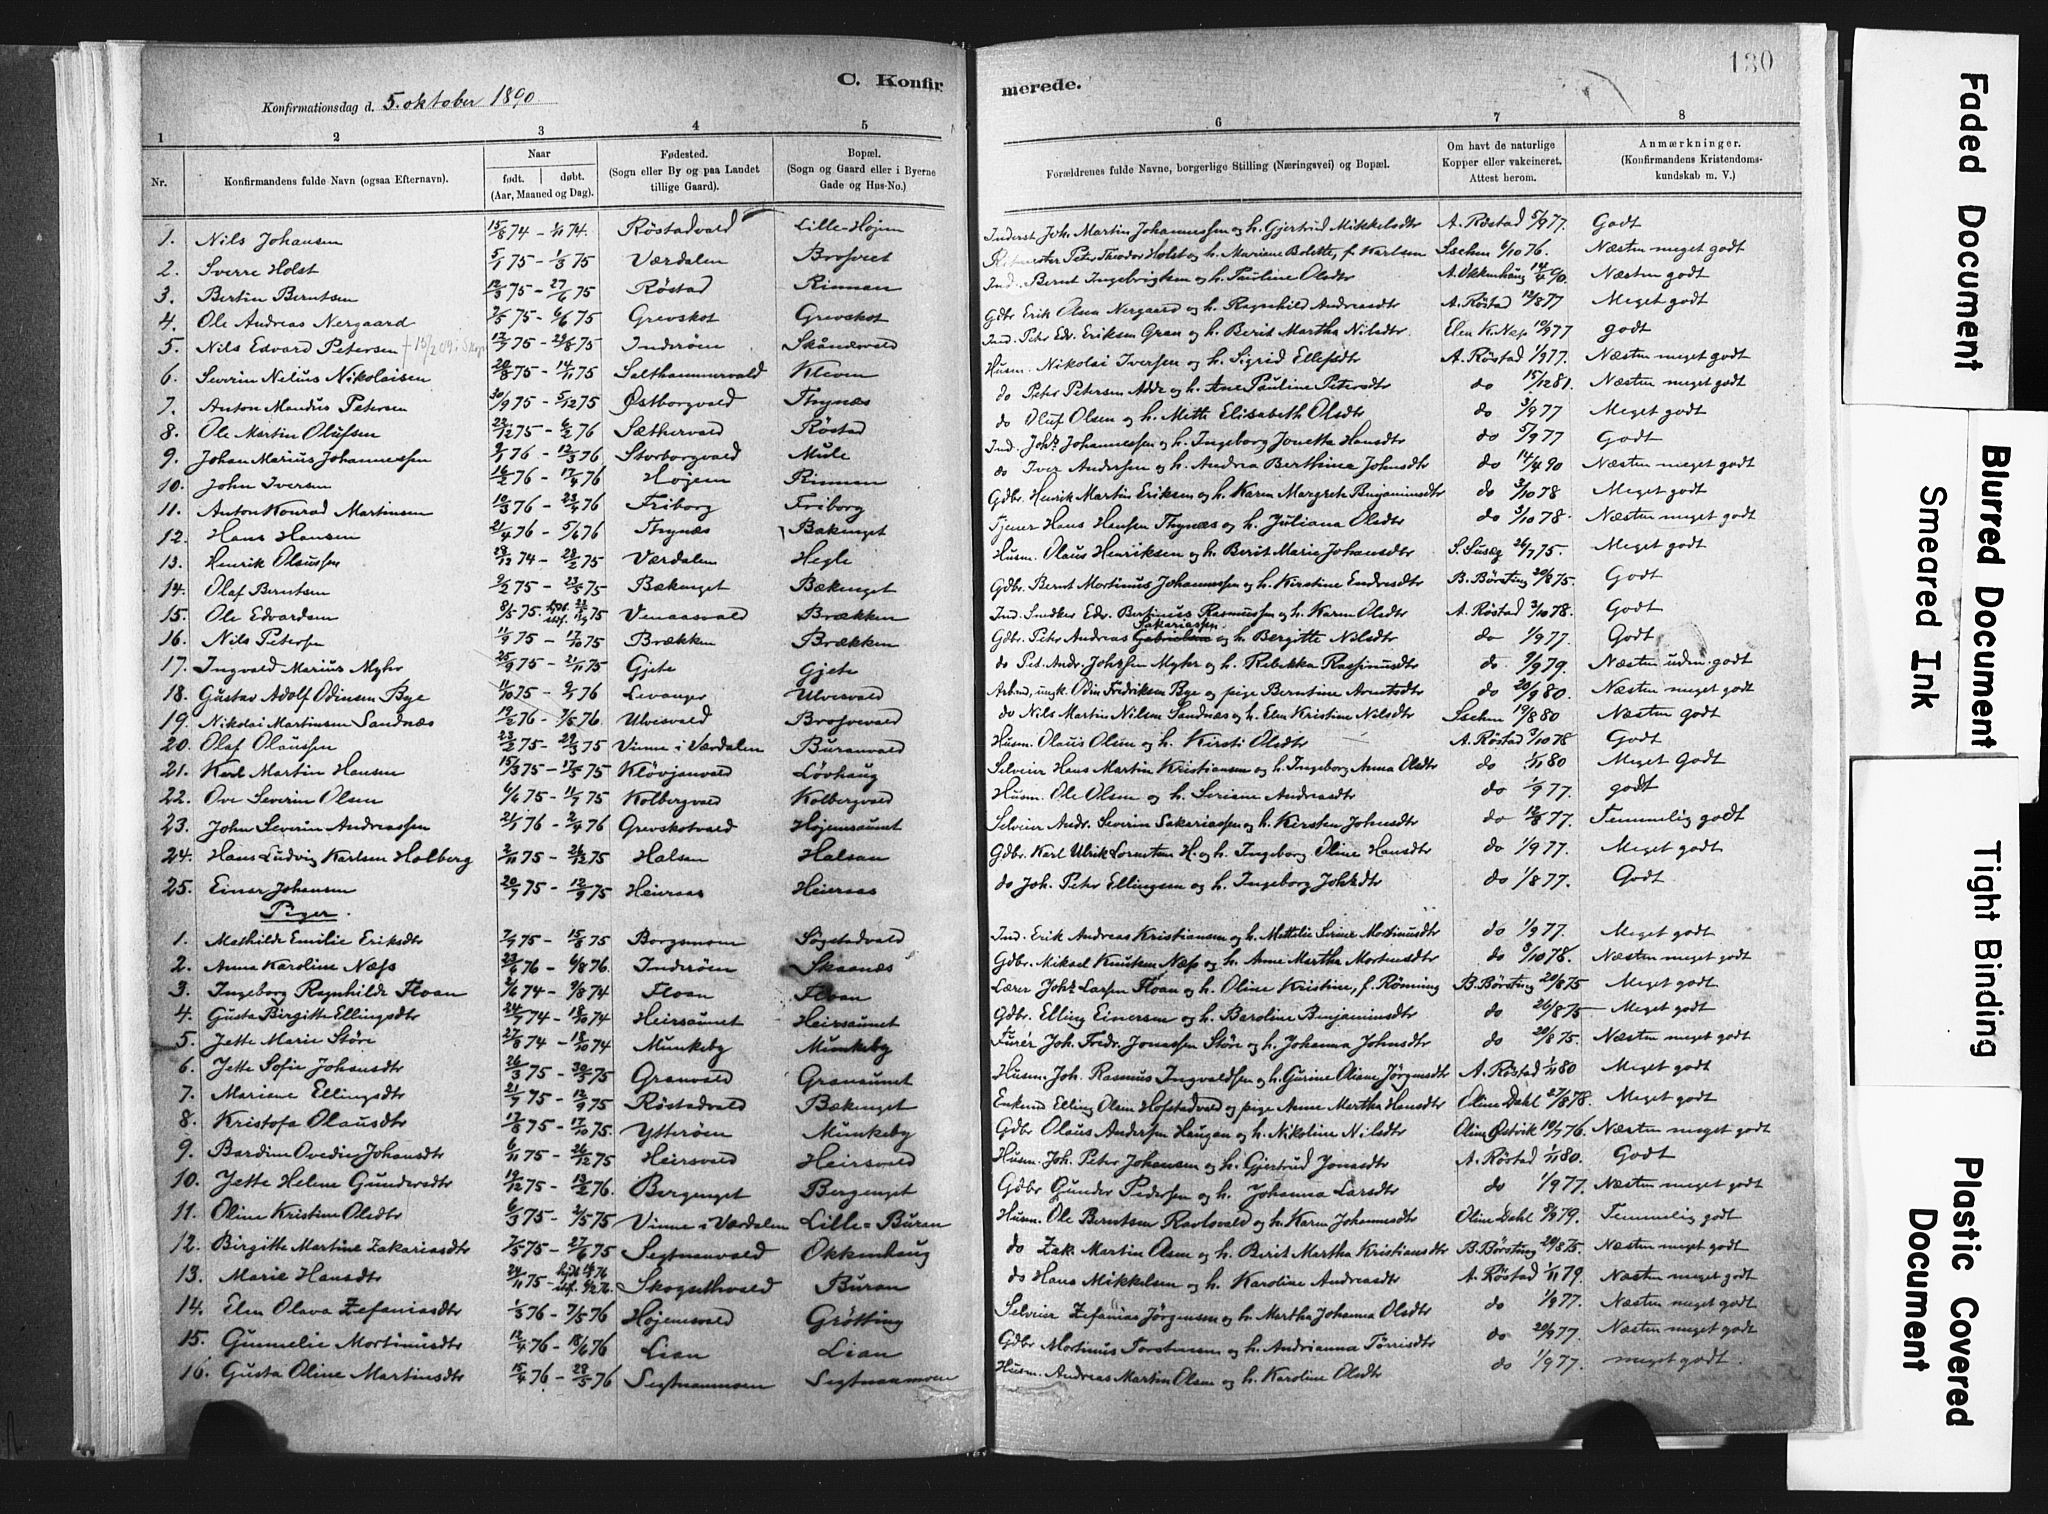 C. Konfirmerede.
130
Konfirmationsdag d. 5. oktober 1890
1 2 3 4 5 6 7 8
Nr. Konfirmandens fulde Navn (ogsaa Efternavn). Naar født. døbt. (Aar, Maaned og Dag). Fødested. (Sogn eller By og paa Landet tillige Gaard). Bopæl. (Sogn og Gaard eller i Byerne Gade og Hus-No.) Forældrenes fulde Navne, borgerlige Stilling (Næringsvei) og Bopæl. Om havt de naturlige Kopper eller vakcineret. Attest herom. Anmærkninger. (Konfirmandens Kristendomskundskab m. V.)
1. Nils Johansen 15/8 74 - 1/11 74. Røstadvald Lille-Højem Inderst Joh. Martin Johannessen og h. Gjertrud Mikkelsdtr A. Røstad 5/9 77. Godt
2. Sverre Holst 5/1 75 - 1/3 75 Værdalen Brosveet Peter Theodor Holst og h. Mariane Bolette, f. Karlsen 6/10 76. Næsten meget godt
3. Bertin Berntsen 12/3 75 - 27/6 75 Røstad Rinnan Ind. Bernt Ingebrigtsen og h. Pauline Olsdtr A. Okkenhaug 14/4 90. Næsten godt
4. Ole Andreas Nergaard 2/5 75 - 6/6 75 Grevskot Grevskot Gdbr Erik Olsen Nergaard og h. Ragnhild Andreasdtr A. Røstad 12/8 77 Meget godt
5. Nils Edvard Petersen 12/7 75 - 29/8 75 Inderøen Skånesvald Ind. Petr Edv. Eriksen Gran og h. Berit Martha Nilsdtr. Elen K. Næss 12/9 77 godt
6. Severin Nelius Nikolaisen 20/8 75 - 14/11 75 Salthammervald Kleven Husm. Nikolai Iversen og h. Sigrid Ellefsdtr A. Røstad 1/9 77. Næsten meget godt
7. Anton Mandus Petersen 30/9 75 - 5/12 75 Østborgvald Thynæs do Peter Petersen Adde og h. Ane Pauline Petersdtr do 15/12 81. Næsten meget godt
8. Ole Martin Olufsen 23/12 75 - 6/2 76 Sæthervald Røstad do Oluf Olsen og h. Mette Elisabeth Olsdtr do 3/9 77 Meget godt
9. Johan Marius Johannessen 9/1 76 - 12/3 76 Storborgvald Mule Ind. Johs Johannessen og h. Ingeborg Jonetta Hansdtr do 5/9 77 Godt
10. John Iversen 16/2 76 - 17/4 76 Højem Rinnan do Iver Andersen og h. Andrea Berthine Johnsdtr do 14/4 90 Næsten meget godt
11. Anton Konrad Martinsen 10/3 76 - 23/4 76 Friborg Friborg Gdbr. Henrik Martin Eriksen og h. Karen Margrete Benjaminsdtr do 3/10 78 Meget godt
12. Hans Hansen 21/4 76 - 5/6 76 Thynæs Bakenget Tjener Hans Hansen Thynæs og h. Juliana Olsdtr do 3/10 78. Næsten meget godt
13. Henrik Olaussen 28/12 74 - 28/2 75 Værdalen Hegle Husm. Olaus Henriksen og h. Berit Marie Johansdtr 26/7 75. Meget godt
14. Olaf Berntsen 9/2 75 - 23/5 75 Bækenget Bækenget Gdbr Bernt Mortinus Johannessen og h. Kirstine Endresdtr B. Børsting 20/8 75. Godt
15. Ole Edvardsen 8/5 75. Venaasvald Brækken Ind. Smdker Edv. Bertinus Rasmussen og h. Karen Olsdtr A. Røstad 3/10 78. Godt
16. Nils Petersen 11/9 75 - 17/10 75 Brækken Brækken Gdbr. Petr Andreas Sakariassen og h. Bergitte Nilsdtr do 1/9 77. Godt
17. Ingvald Marius Myhr 25/9 75 - 21/11 75 Gjete Gjete do Pet. Andr. Johssen Myhr og h. Rebekka Rasmusdtr do 9/9 79. Næsten udm. godt
18. Gustav Adolf Odinsen Bye 11/10 75 - 9/1 76 Levanger Ulvesvald Arbmd, ungk. Odin Fredriksen Bye og pige Berntine Arntsdtr do 20/9 80. Næsten meget godt
19. Nikolai Martinsen Sandnæs 19/2 76 - 7/5 76. Ulvesvald Brosvevald do Nils Martin Nilsen Sandnæs og h. Elen Kristine Nilsdtr 19/8 80 Næsten godt
20. Olaf Olaussen 23/2 75 - 29/3 75 Vinne i Værdalen Buranvald Husm. Olaus Olsen og h. Kirsti Olsdtr A. Røstad 3/10 78 Godt
21. Karl Martin Hansen 15/3 75 - 17/5 75 Kløvjanvald Løvhaug Selveier Hans Martin Kristiansen og h. Ingeborg Anna Olsdtr do 1/11 80 Meget Godt
22. Ove Severin Olsen 6/6 75 - 11/7 75 Kolbergvald Kolbergvald Husm. Ole Olsen og h. Seriane Andreasdtr do 1/9 77. godt
23. John Severin Andreassen 21/1 76 - 2/4 76 Grevskotvald Højemsaunet Selveier Andr. Severin Sakariassen og h. Kirsten Johnsdtr do 12/8 77. Temmelig godt
24. Hans Ludvig Karlsen Holberg 2/11 75 - 26/12 75 Halsan Halsan Gdbr. Karl Ulrik Lorentsen H. og h. Ingeborg Oline Hansdtr do 1/9 77. Meget godt
25. Einar Johansen 20/7 75 - 12/9 75 Heieraas Heieraas do Joh. Peter Ellingsen og h. Ingeborg Johsdtr do 1/8 77. Godt
Piger.
1. Mathilde Emilie Eriksdtr 7/7 75 - 15/8 75 Borgsmoen Søgstadvald Ind. Erik Andreas Kristiansen og h. Mettelie Serine Mortinusdtr do 1/9 77. Meget godt
2. Anna Karoline Næss 23/6 76 - 6/8 76. Inderøen Skaanæs Gdbr. Mikael Knutsen Næss og h. Anne Martha Mortensdtr do 3/10 78. Næsten meget godt
3. Ingeborg Ragnhilde Floan 2/6 74 - 9/8 74 Floan Floan Lærer Johs Larsen Floan og h. Oline Kristine, f. Rønning B. Børsting 20/8 75 Meget godt
4. Gusta Birgitte Ellingsdtr 24/7 74 - 18/10 74 Heirsaunet Heirsaunet Gdbr. Elling Einersen og h. Baroline Benjaminsdtr do 26/8 75 Meget godt
5. Jette Marie Støre 27/8 74 - 18/10 74 Munkeby Munkeby Furér Joh. Fredr. Jonassen Støre og h. Johanna Johnsdtr do 20/8 75. Næsten meget godt
6. Jette Sofie Johansdtr 26/3 75 - 30/5 75 Granvald Gransunet Husm. Joh. Rasmus Ingvaldsen og h. Gurine Oliane Jørgensdtr A. Røstad 1/11 80 Meget godt
7. Mariene Ellingsdtr 21/7 75 - 12/9 75 Røstadvald Bækenget Enkemd Elling Olsen Hofstadvald og pige Anne Martha Hansdtr Oline Dahl 27/8 78. Meget godt
8. Kristofa Olausdtr 17/8 75 - 17/10 75. Ytterøen Munkeby Gdbr Olaus Andersen Haugan og h. Nikoline Nilsdtr Oline Østvik 10/7 76. Næsten meget godt
9. Bardine Ovedie Johansdtr 6/11 75 - 26/12 75 Heirsvald Heirsvald Husm. Joh. Peter Johansen og h. Gjertrud Jonasdtr A. Røstad 1/11 80. Godt
10. Jette Helene Gundersdtr 19/12 75 - 13/2 76. Bergenget Bergenget Gdbr Gunder Pedersen og h. Johanna Larsdtr do 1/9 77. Næsten meget godt
11. Oline Kristine Olsdtr 6/3 75 - 2/5 75 Vinne i Værdalen Lille-Buran Husm. Ole Berntsen Ravlsvald og h. Karen Johannesdtr Oline Dahl 8/9 79. Temmelig godt
12. Birgitte Martine Zakariasdtr 7/5 75 - 27/6 75 Segtnanvald Okkenhaug do Zak. Martin Olsen og h. Berit Martha Kristiansdtr B. Børsting 20/8 75. Næsten meget godt
13. Marie Hansdtr 24/11 75 - Skogsethvald Buran do Hans Mikkelsen og h. Karoline Andreasdtr A. Røstad 1/11 79. Næsten meget godt
14. Elen Olava Zefaniasdtr 1/3 76 - 7/5 76 Højemsvald Grøtting Selveier Zefanias Jørgensen og h. Martha Johanna Olsdtr do 1/9 77. Næsten meget godt
15. Gunnelie Mortinusdtr 12/4 76 - 18/6 76 Lian Lian Gdbr Mortinus Torstensen og h. Andrianna Tørrisdtr do 20/9 77. Næsten meget godt
16. Gusta Oline Martinsdtr 15/4 76 - 28/5 76 Segtnanmoen Segtnaanmoen Husm. Andreas Martin Olsen og h. Karoline Olsdtr do 1/9 77. meget godt.
Faded Document
Blurred Document
Smeared Ink
Tight Binding
Plastic Covered
Document